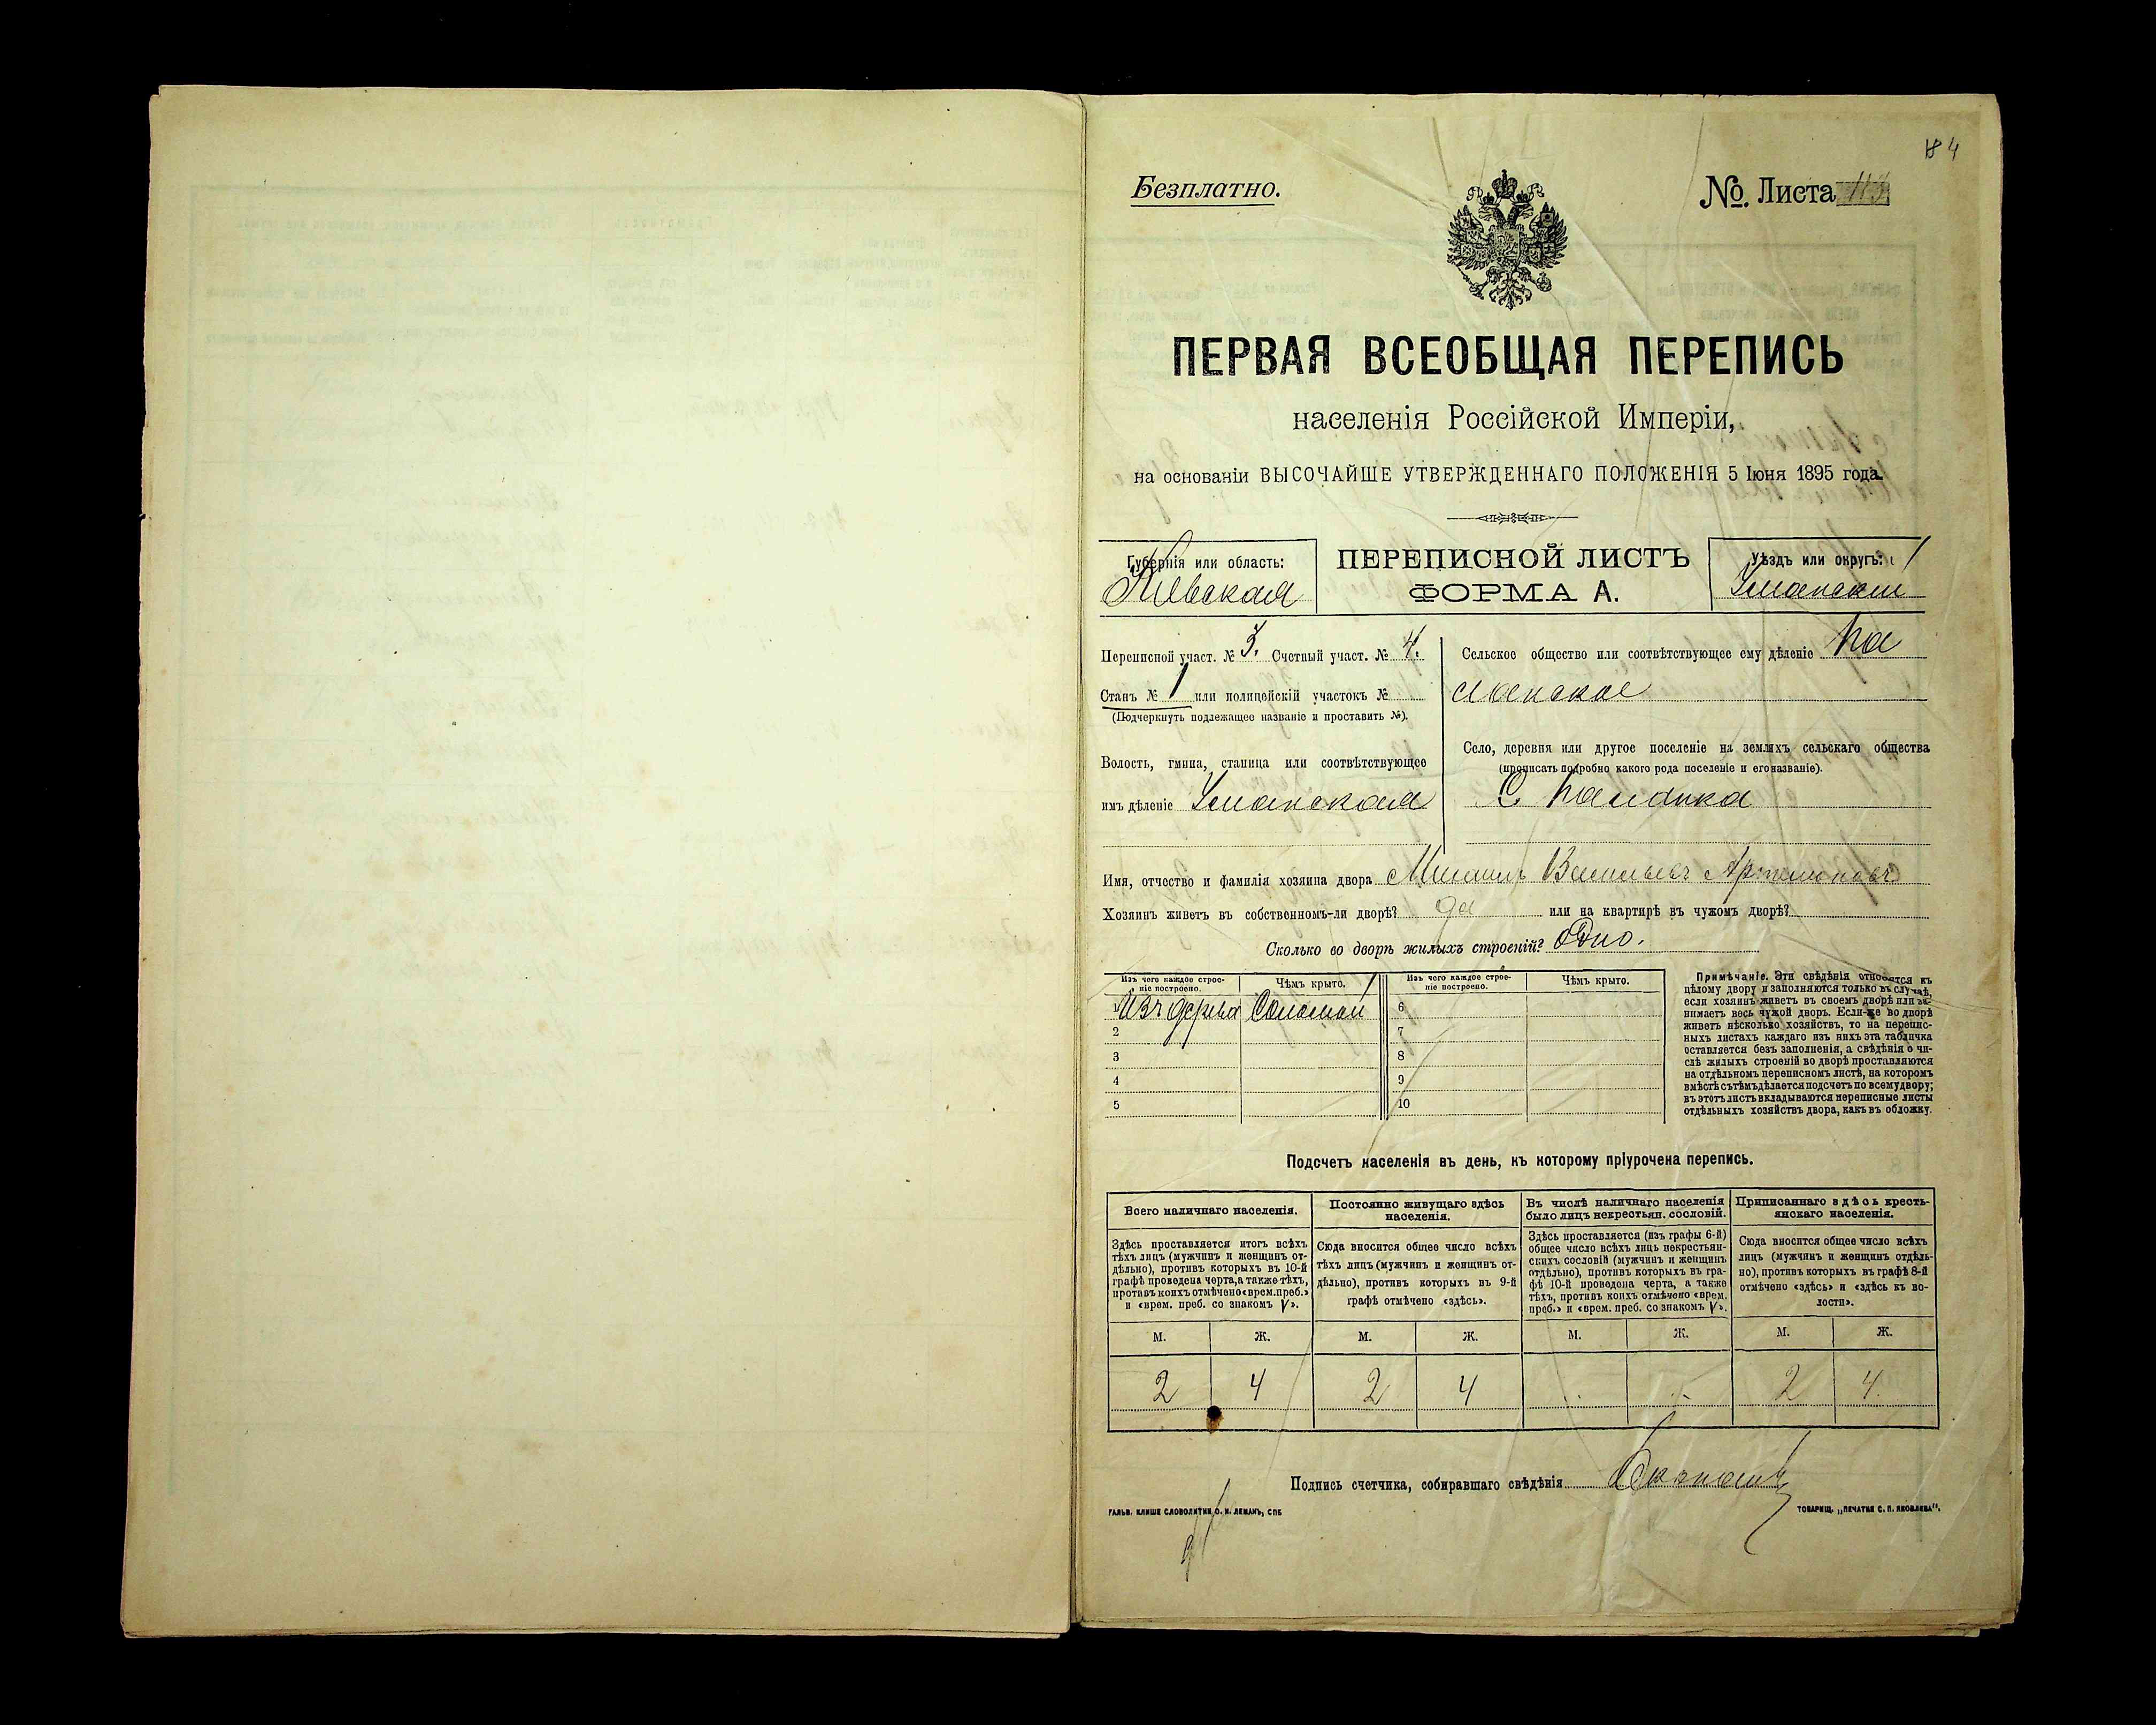 84
Безплатно.
№. Листа 113
ПЕРВАЯ ВСЕОБЩАЯ ПЕРЕПИСЬ
населенія Россійской Имперіи,
на основаніи ВЫСОЧАЙШЕ УТВЕРЖДЕННАГО ПОЛОЖЕНІЯ 5 Іюня 1895 года.
Губернія или область:
Кіевская
ПЕРЕПИСНОЙ ЛИСТЪ
ФОРМА А.
Уѣздъ или округъ:
Уманскій
Переписной участ. № 3. Счетный участ. № 4.
Станъ № 1 или полицейскій участокъ №
(Подчеркнуть подлежащее названіе и проставить №).
Волость, гмина, станица или соотвѣтствующее
имъ дѣленіе Уманская
Сельское общество или соотвѣтствующее ему дѣленіе Па
ланское
Село, деревня или другое поселеніе на земляхъ сельскаго общества
(прописать подробно какого рода поселеніе и его названіе).
С. Паланка
Имя, отчество и фамилія хозяина двора Михаилъ Васильевъ
Хозяинъ живетъ въ собственномъ-ли дворѣ? да или на квартирѣ въ чужомъ дворѣ?
Сколько во дворѣ жилыхъ строеній? Одно.
Изъ чего каждое строе-
ніе построено.
Чѣмъ крыто.
Изъ чего каждое строе-
ніе построено.
Чѣмъ крыто.
1 Изъ дерева Соломой 6
2 7
3 8
4 9
5 10
Примѣчаніе. Эти свѣдѣнія относятся къ
цѣлому двору и заполняются только въ случаѣ,
если хозяинъ живетъ въ своемъ дворѣ или за-
нимаетъ весь чужой дворъ. Если-же во дворѣ
живетъ нѣсколько хозяйствъ, то на перепис-
ныхъ листахъ каждаго изъ нихъ эта табличка
оставляется безъ заполненія, а свѣдѣнія о чи-
слѣ жилыхъ строеній во дворѣ проставляются
на отдѣльномъ переписномъ листѣ, на которомъ
вмѣстѣ съ тѣмъ дѣлается подсчетъ по всему двору;
въ этотъ листъ вкладываются переписные листы
отдѣльныхъ хозяйствъ двора, какъ въ обложку.
Подсчетъ населенія въ день, къ которому пріурочена перепись.
Всего наличнаго населенія.
Здѣсь проставляется итогъ всѣхъ
тѣхъ лицъ (мужчинъ и женщинъ от-
дѣльно), противъ которыхъ въ 10-й
графѣ проведена черта, а также тѣхъ,
противъ коихъ отмѣчено «врем. преб.»
и «врем. преб. со знакомъ V».
Постоянно живущаго здѣсь
населенія.
Сюда вносится общее число всѣхъ
тѣхъ лицъ (мужчинъ и женщинъ от-
дѣльно), противъ которыхъ въ 9-й
графѣ отмѣчено «здѣсь».
Въ числѣ наличнаго населенія
было лицъ некрестьян. сословій.
Здѣсь проставляется (изъ графы 6-й)
общее число всѣхъ лицъ некрестьян-
скихъ сословій (мужчинъ и женщинъ
отдѣльно), противъ которыхъ въ гра-
фѣ 10-й проведена черта, а также
тѣхъ, противъ коихъ отмѣчено «врем.
преб.» и «врем. преб. со знакомъ V».
Приписаннаго здѣсь кресть-
янскаго населенія.
Сюда вносится общее число всѣхъ
лицъ (мужчинъ и женщинъ отдѣль-
но), противъ которыхъ въ графѣ 8-й
отмѣчено «здѣсь» и «здѣсь къ во-
лости».
М. Ж. М. Ж. М. Ж. М. Ж.
2 4 2 4 .. .. 2 4.
Подпись счетчика, собиравшаго свѣдѣнія
ГАЛЬВ. КЛИШЕ СЛОВОЛИТНИ О. И. ЛЕМАНЪ, СПБ
ТОВАРИЩ. „ПЕЧАТНИ С. П. ЯКОВЛЕВА".